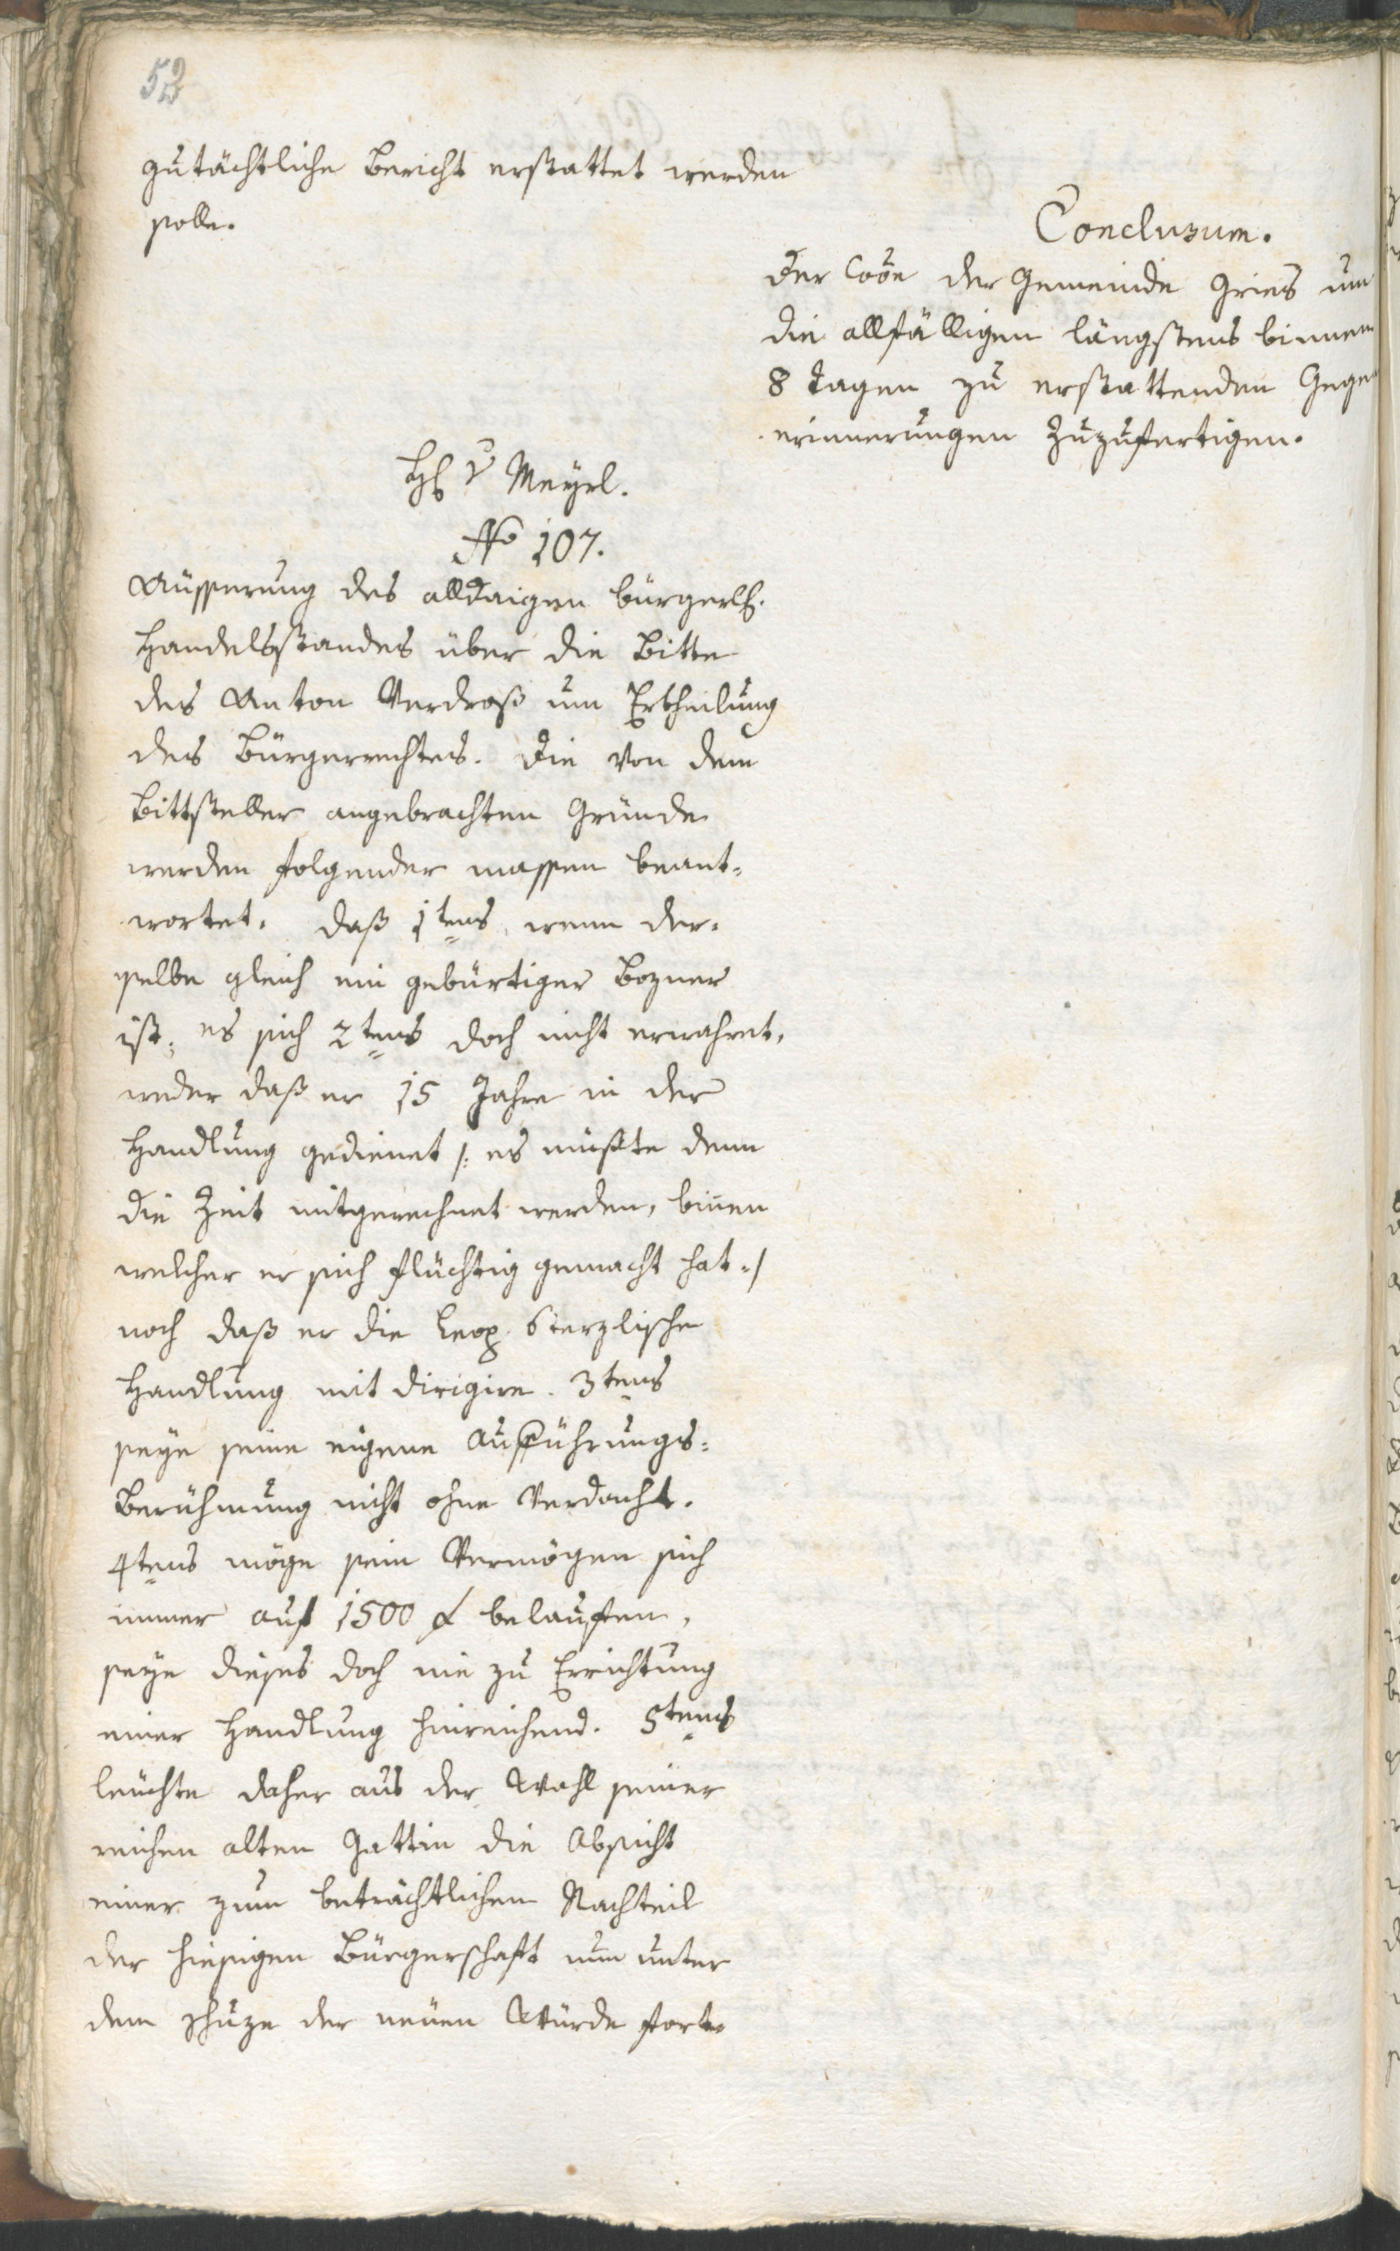 52
gutächtliche Bericht erstattet werden
solle.
Conclusum.
Der Coõe der Gemeinde Gries um
die allfälligen längstens binnen
8 Tagen zu erstattenden Gegen
erinnerungen zuzufertigen.
H: v Meyrl.
No 107.
Aüsserung des alldaigen bürgerl:
Handelsstandes über die Bitte
des Anton Verdroß um Ertheilung
des Bürgerrechtes. Die von dem
Bittsteller angebrachten Gründe
werden folgender massen beant-
wortet. Daß 1tens wenn der-
selbe gleich ein gebürtiger Bozner
ist; es sich 2tens doch nicht erwahret,
weder daß er 15 Jahre in der
Handlung gedienet /: es müßte denn
die Zeit mitgerechnet werden, binen
welcher er sich flüchtig gemacht hat :/
noch daß er die Leop. Sterzlische
Handlung mit dirigire. 3tens
seye seine eigene Aufführungs-
Berühmung nicht ohne Verdacht.
4tens möge sein Vermögen sich
immer auf 1500 f belauffen,
seye dieses doch nie zu Errichtung
einer Handlung hinreichend. 5tens
leüchte daher aus der Wahl seiner
reichen alten Gattin die Absicht
einer zum beträchtlichen Nachteil
der hiesigen Bürgerschaft nun unter
dem schuze der neüen Würde fort-